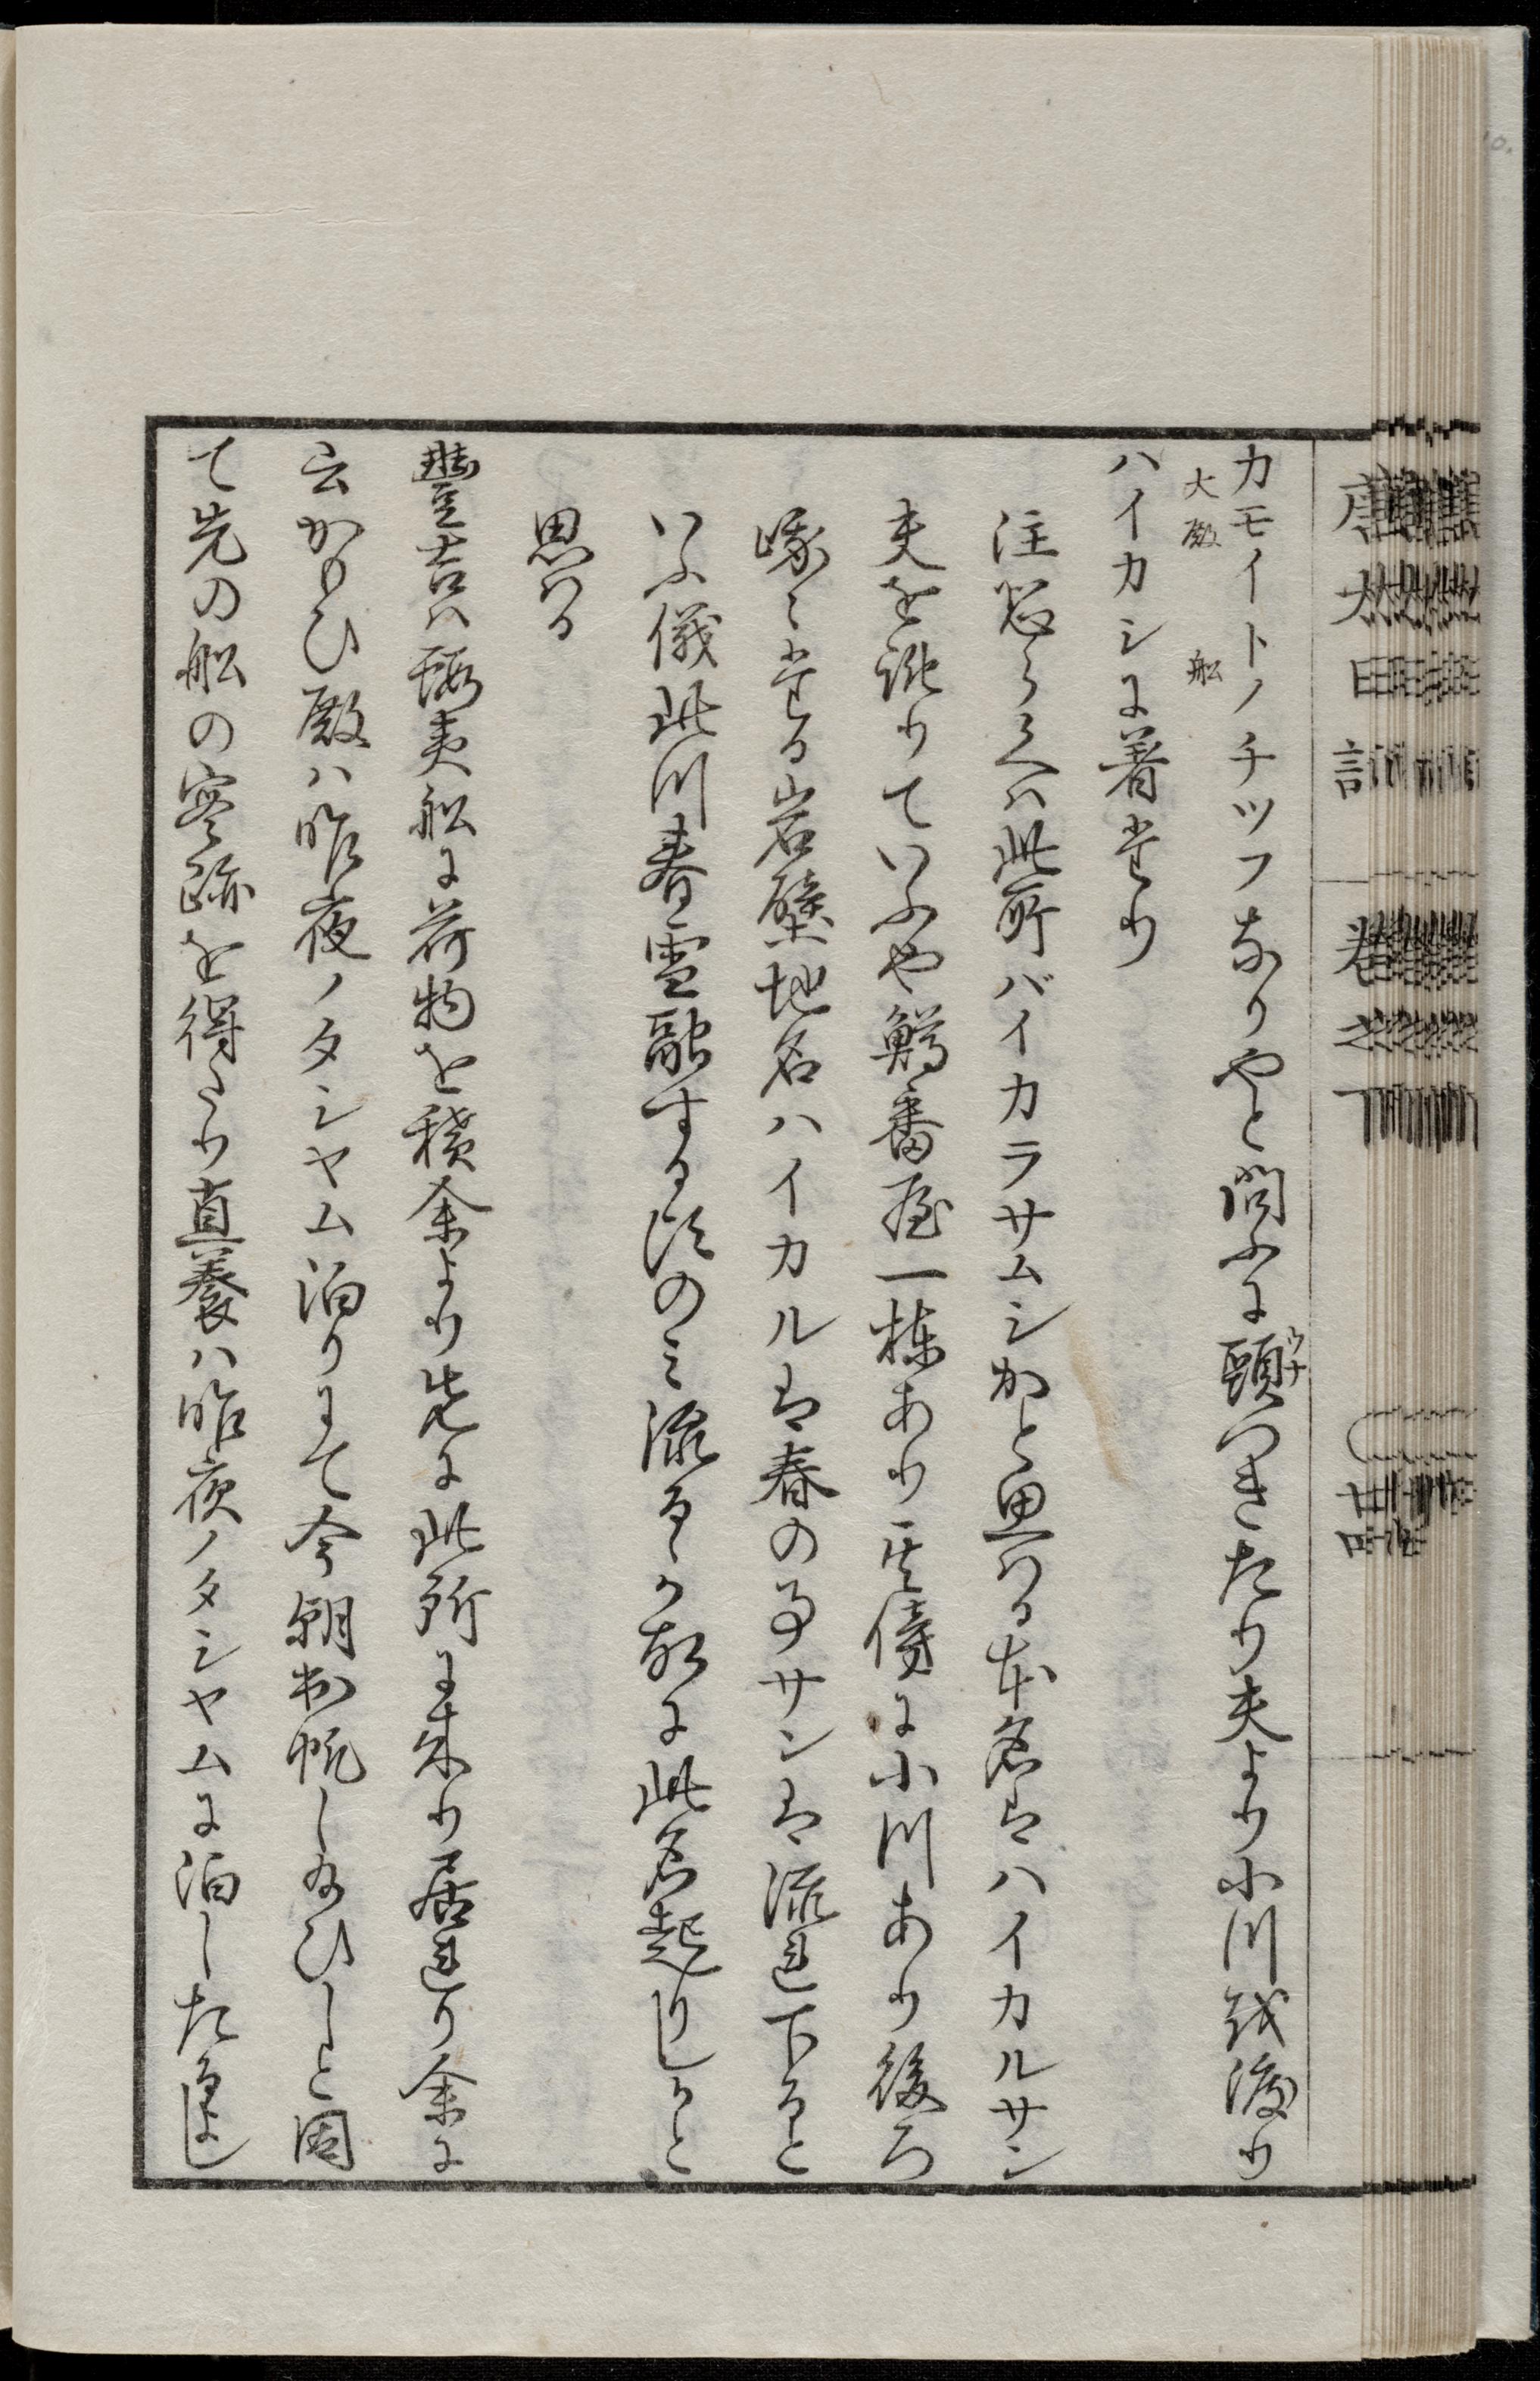 カモイトノチツフなりやと問ふに頭つきたり夫より小川越渡り
大殿 船
ウナ
ハイカシに着たり
注 此所バイカラサムシかと思わる本名はハイカルサン
夫を訛りていふや鱒番屋一棟あり其傍に小川あり後ろ
峨ミたる岩壁地名ハイカルは春の事サンは流れ下ると
いふ儀此川春雪融する頃のミ流るゝ故に此名起りしかと
思わる
豊吉ハ蝦夷船に荷物を積余より先に此所に来り居れり余に
云かもひ殿ハ昨夜ノタシヤム泊りにて今朝出帆し給ひしと因
て先の船の跡を得たり直養ハ昨夜ノタシヤムに泊したるよし
唐太日記 巻之下